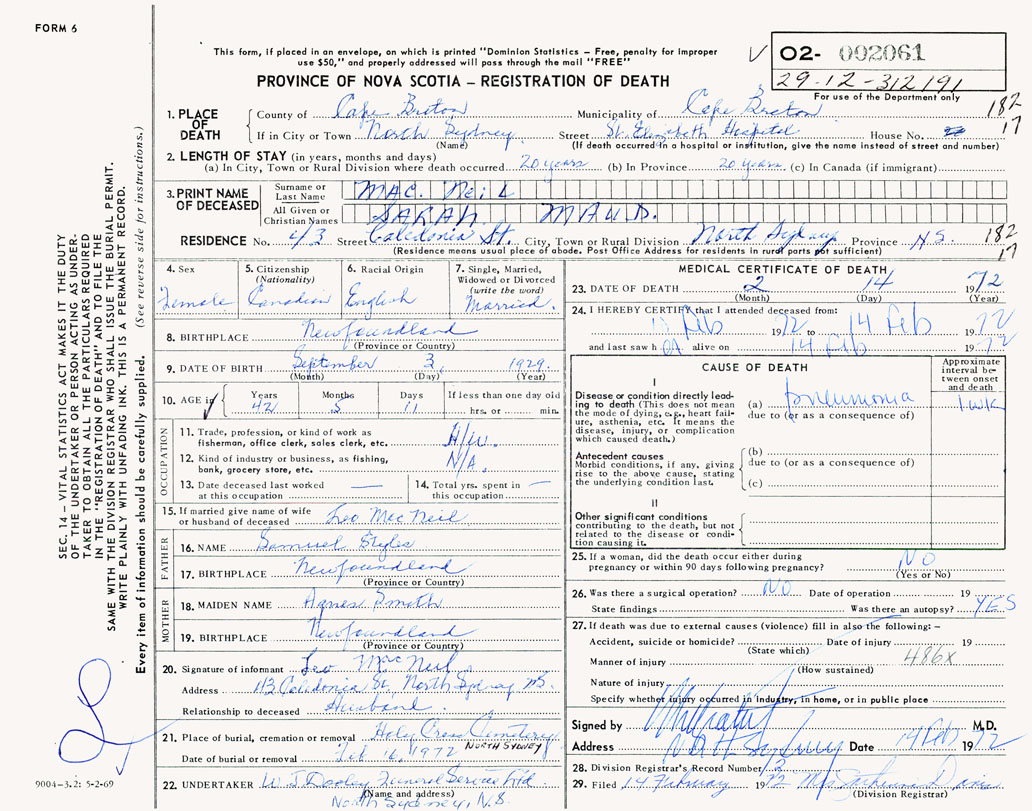 FORM 6
This form, if placed in an envelope, on which is printed "Dominion Statistics – Free, penalty for improper
use $50," and properly addressed will pass through the mail "FREE"
PROVINCE OF NOVA SCOTIA – REGISTRATION OF DEATH
02- 002061
29-12-312191
For use of the Department only
1. PLACE OF DEATH
County of Cape Breton Municipality of Cape Breton 182
If in City or Town North Sydney Street St. Elizabeth Hospital House No. 17
(Name) (If death occurred in a hospital or institution, give the name instead of street and number)
2. LENGTH OF STAY (in years, months and days)
(a) In City, Town or Rural Division where death occurred 20 years (b) In Province 20 years (c) In Canada (if immigrant)
3. PRINT NAME OF DECEASED
Surname or Last Name MAC NEIL
All Given or Christian Names SARAH MAUD.
RESIDENCE No. 43 Street Caledonia St. City, Town or Rural Division North Sydney Province N.S. 182
(Residence means usual place of abode. Post Office Address for residents in rural parts not sufficient) 17
4. Sex Female
5. Citizenship (Nationality) Canadian
6. Racial Origin English
7. Single, Married, Widowed or Divorced (write the word) Married.
8. BIRTHPLACE Newfoundland
(Province or Country)
9. DATE OF BIRTH September 3, 1929.
(Month) (Day) (Year)
10. AGE in Years 42 Months 5 Days 11 If less than one day old hrs. or min.
OCCUPATION
11. Trade, profession, or kind of work as fisherman, office clerk, sales clerk, etc. H/W.
12. Kind of industry or business, as fishing, bank, grocery store, etc. N/A.
13. Date deceased last worked at this occupation —
14. Total yrs. spent in this occupation —
15. If married give name of wife or husband of deceased Leo MacNeil
FATHER
16. NAME Samuel Styles
17. BIRTHPLACE Newfoundland
(Province or Country)
MOTHER
18. MAIDEN NAME Agnes Smith
19. BIRTHPLACE Newfoundland
(Province or Country)
20. Signature of informant Leo MacNeil
Address 113 Caledonia St, North Sydney NS.
Relationship to deceased Husband.
21. Place of burial, cremation or removal Holy Cross Cemetery
NORTH SYDNEY
Date of burial or removal Feb 16, 1972
22. UNDERTAKER W. J. Dooley Funeral Service Ltd
(Name and address)
North Sydney, N.S.
MEDICAL CERTIFICATE OF DEATH
23. DATE OF DEATH 2 14 1972
(Month) (Day) (Year)
24. I HEREBY CERTIFY that I attended deceased from:
Feb 1972 to 14 Feb 1972
and last saw her alive on 14 Feb 1972
CAUSE OF DEATH
Approximate interval between onset and death
I
Disease or condition directly leading to death (This does not mean the mode of dying, e.g., heart failure, asthenia, etc. It means the disease, injury, or complication which caused death.)
(a) pneumonia 1 wk
due to (or as a consequence of)
Antecedent causes
Morbid conditions, if any, giving rise to the above cause, stating the underlying condition last.
(b)
due to (or as a consequence of)
(c)
II
Other significant conditions contributing to the death, but not related to the disease or condition causing it.
25. If a woman, did the death occur either during pregnancy or within 90 days following pregnancy? NO
(Yes or No)
26. Was there a surgical operation? NO Date of operation 19
State findings Was there an autopsy? YES
27. If death was due to external causes (violence) fill in also the following: –
Accident, suicide or homicide? Date of injury 19
(State which)
Manner of injury 486X
(How sustained)
Nature of injury
Specify whether injury occurred in industry, in home, or in public place
Signed by M.D.
Address North Sydney Date 14 Feb 1972
28. Division Registrar's Record Number 12
29. Filed 14 February 1972 Mrs. Davis
(Division Registrar)
SEC. 14 – VITAL STATISTICS ACT MAKES IT THE DUTY
OF THE UNDERTAKER OR PERSON ACTING AS UNDER-
TAKER TO OBTAIN ALL THE PARTICULARS REQUIRED
IN THE "REGISTRATION OF DEATH" AND TO FILE THE
SAME WITH THE DIVISION REGISTRAR WHO SHALL ISSUE THE BURIAL PERMIT.
WRITE PLAINLY WITH UNFADING INK. THIS IS A PERMANENT RECORD.
Every item of information should be carefully supplied. (See reverse side for instructions.)
9004-3.2: 5-2-69